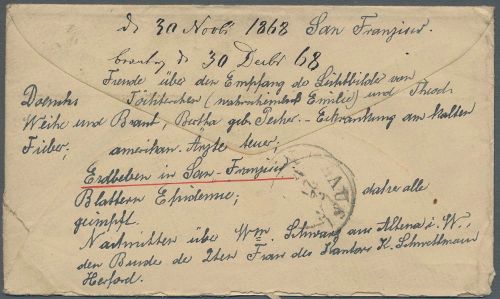 de 30 Novbr 1868 San Franzisco.
beantw. de 30 Decbr 68
Freude über den Empfang der Lichtbilder von
Doenchs Töchterchen (wahrscheinlich Emilie) und Theod.
Weihe und Braut, Bertha geb. Pecher. - Erkrankung am kalten
Fieber, amerikan. Ärzte teuer;
Erdbeben in San-Franzisco
Blattern Epidemie; daher alle
geimpft.
Nachrichten über Wm. Schwarz aus Altena i. W.,
den Bruder der 2ten Frau des Kantors K. Schnettmann
Herford.